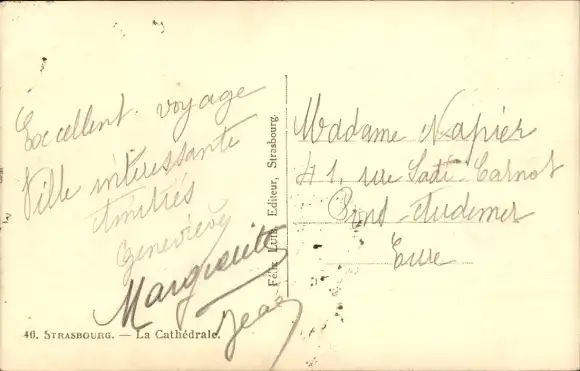 Excellent voyage
Ville intéressante
Amitiés
Geneviève
Marguerite
Jean
46. STRASBOURG. — La Cathédrale.
Félix Luib, Editeur, Strasbourg.
Madame Napier
41. rue Sadi-Carnot
Pont-Audemer
Eure